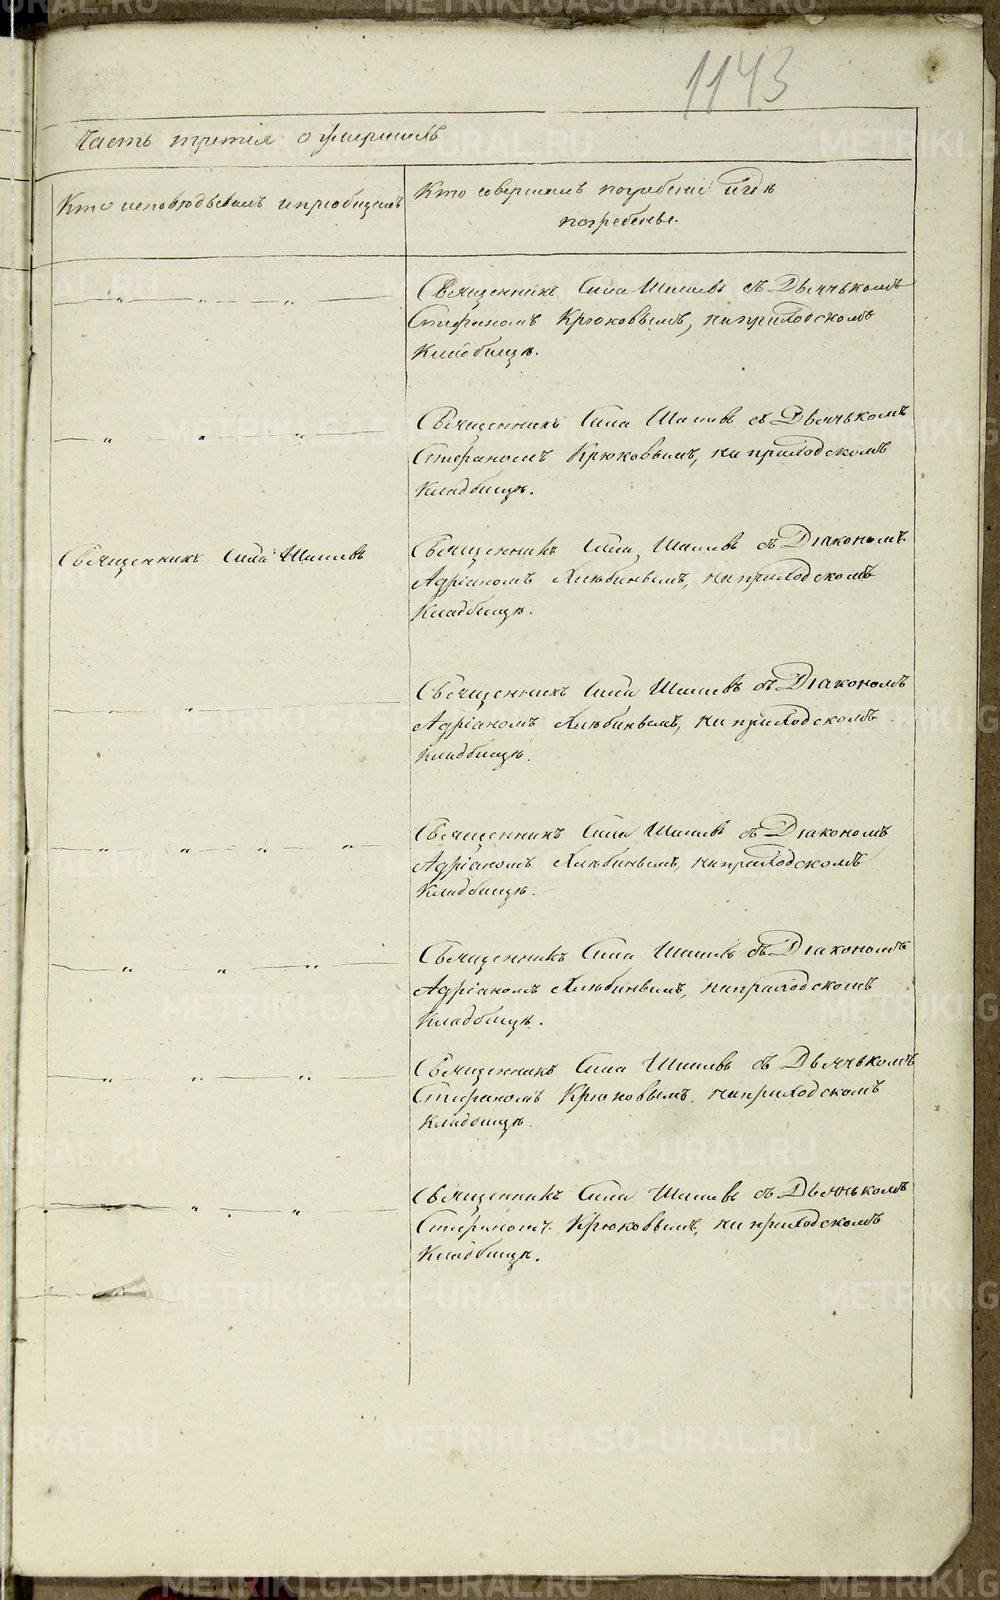 1143
Часть третія о умершихъ
Кто исповѣдывалъ и пріобщалъ
Кто совершалъ погребеніе и гдѣ
погребены.
Священникъ Сила Шишевъ съ Дьячькомъ
Стефаномъ Крюковымъ, на приходскомъ
Кладбищѣ.
Священникъ Сила Шишевъ съ Дьячькомъ
Стефаномъ Крюковымъ, на приходскомъ
Кладбищѣ.
Священникъ Сила Шишевъ
Священникъ Сила Шишевъ съ Діакономъ
Адріаномъ Хлѣбинымъ, на приходскомъ
Кладбищѣ.
Священникъ Сила Шишевъ съ Діакономъ
Адріаномъ Хлѣбинымъ, на приходскомъ
Кладбищѣ.
Священникъ Сила Шишевъ съ Діакономъ
Адріаномъ Хлѣбинымъ, на приходскомъ
Кладбищѣ.
Священникъ Сила Шишевъ съ Діакономъ
Адріаномъ Хлѣбинымъ, на приходскомъ
Кладбищѣ.
Священникъ Сила Шишевъ съ Дьячькомъ
Стефаномъ Крюковымъ, на приходскомъ
Кладбищѣ.
Священникъ Сила Шишевъ съ Дьячькомъ
Стефаномъ Крюковымъ, на приходскомъ
Кладбищѣ.
METRIKI.GASO-URAL.RU